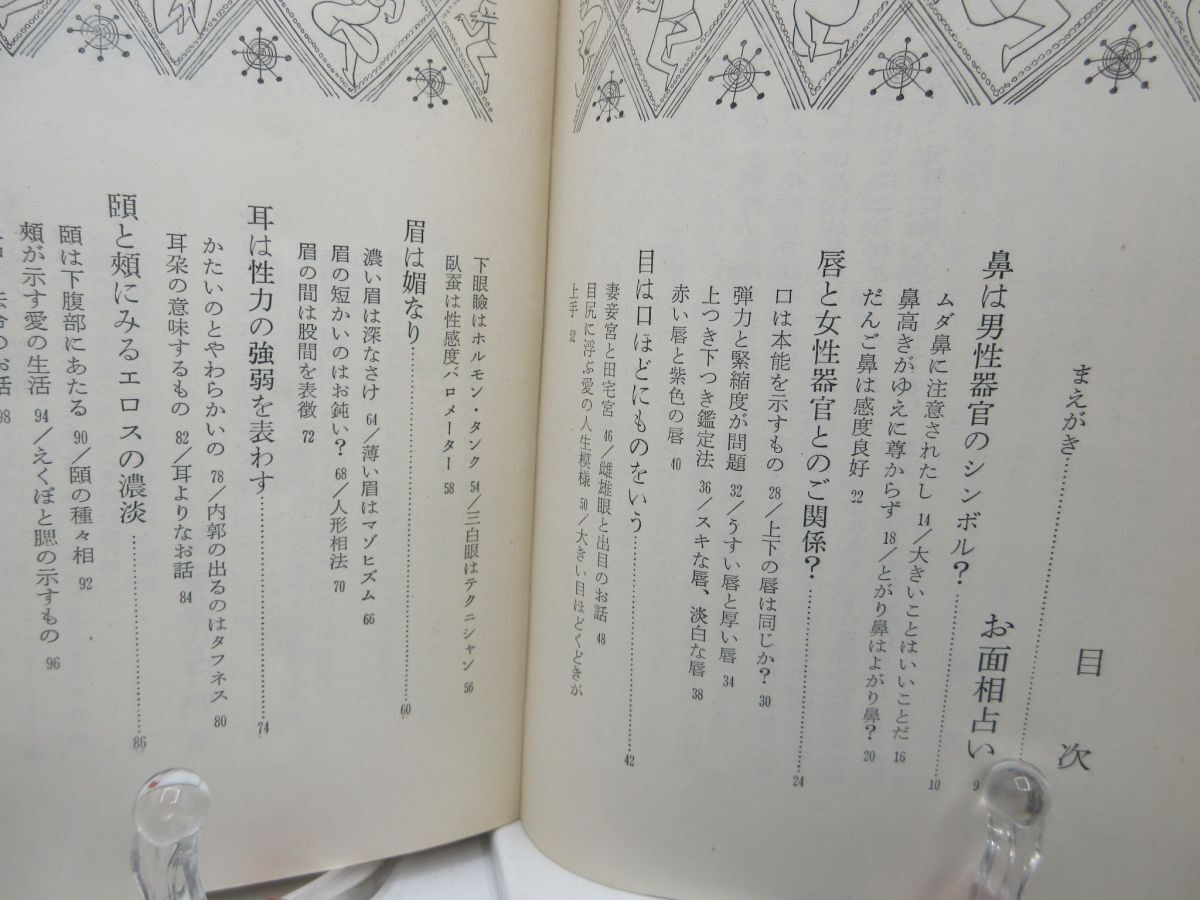 目次
まえがき
お面相占い 9
鼻は男性器官のシンボル? 10
ムダ鼻に注意されたし 14/大きいことはいいことだ 16
鼻高きがゆえに尊からず 18/とがり鼻はよがり鼻? 20
だんご鼻は感度良好 22
唇と女性器官とのご関係? 24
口は本能を示すもの 28/上下の唇は同じか? 30
弾力と緊縮度が問題 32/うすい唇と厚い唇 34
上つき下つき鑑定法 36/スキな唇、淡白な唇 38
赤い唇と紫色の唇 40
目は口ほどにものをいう 42
妻妾宮と田宅宮 46/雌雄眼と出目のお話 48
目尻に浮ぶ愛の人生模様 50/大きい目ほどくどきが
上手 52
下眼瞼はホルモン・タンク 54/三白眼はテクニシャン 56
臥蚕は性感度バロメーター 58
眉は媚なり 60
濃い眉は深なさけ 64/薄い眉はマゾヒズム 66
眉の短かいのはお鈍い? 68/人形相法 70
眉の間は股間を表徴 72
耳は性力の強弱を表わす 74
かたいのとやわらかいの 78/内郭の出るのはタフネス 80
耳朶の意味するもの 82/耳よりなお話 84
頤と頬にみるエロスの濃淡 86
頤は下腹部にあたる 90/頤の種々相 92
頬が示す愛の生活 94/えくぼと腮の示すもの 96
のお話 98